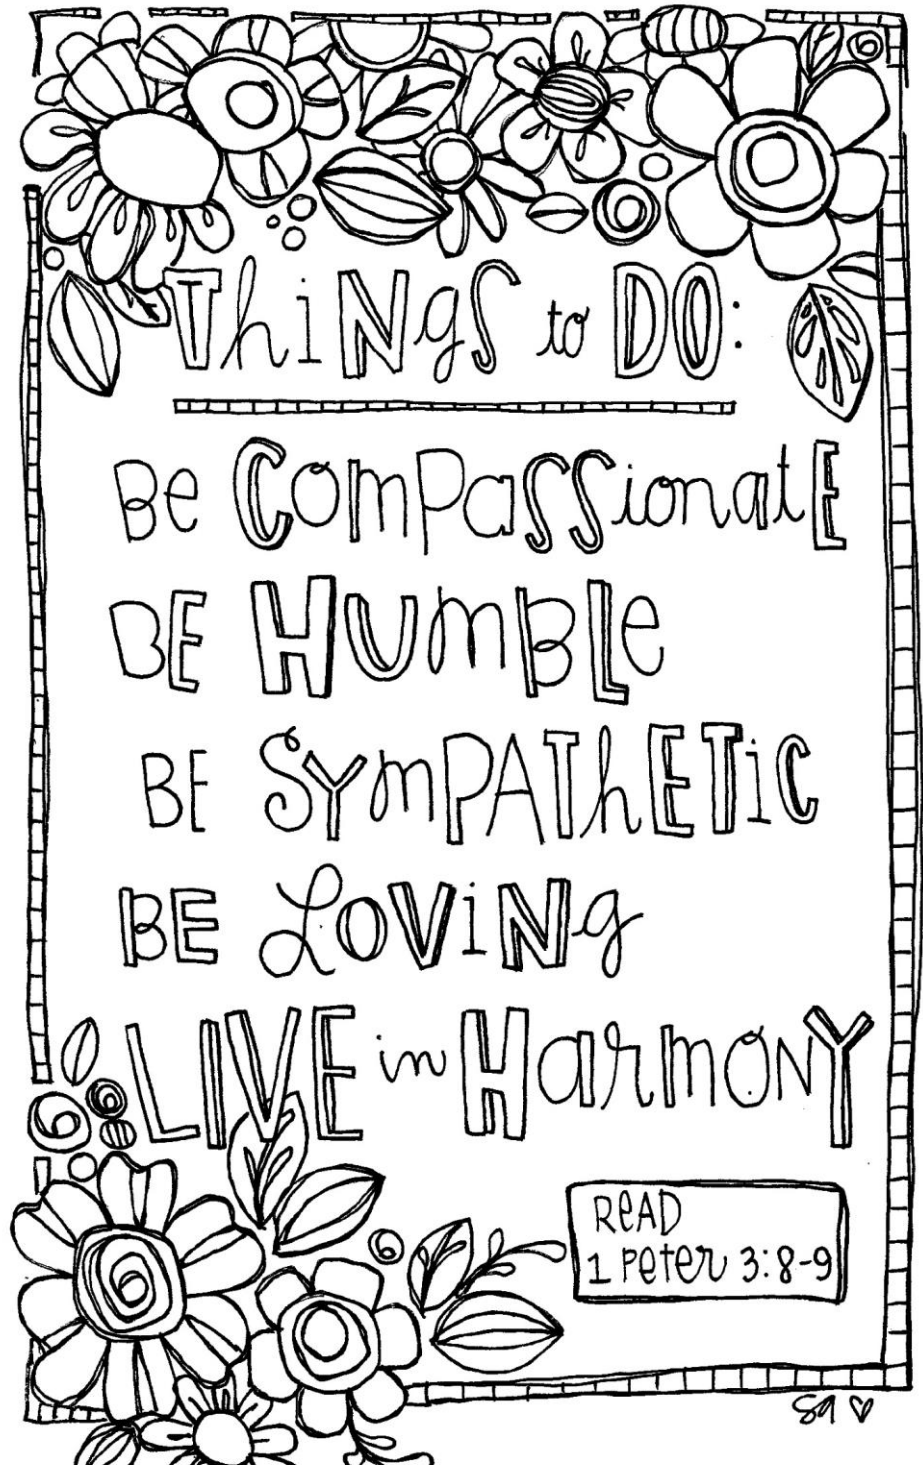 ThiNgS to DO:
Be CompaSSionatE
BE HUmBLe
BE SympAThETiC
BE LOViNg
LIVE in HarmONY
ReAD
1 Peter 3:8-9
Sa